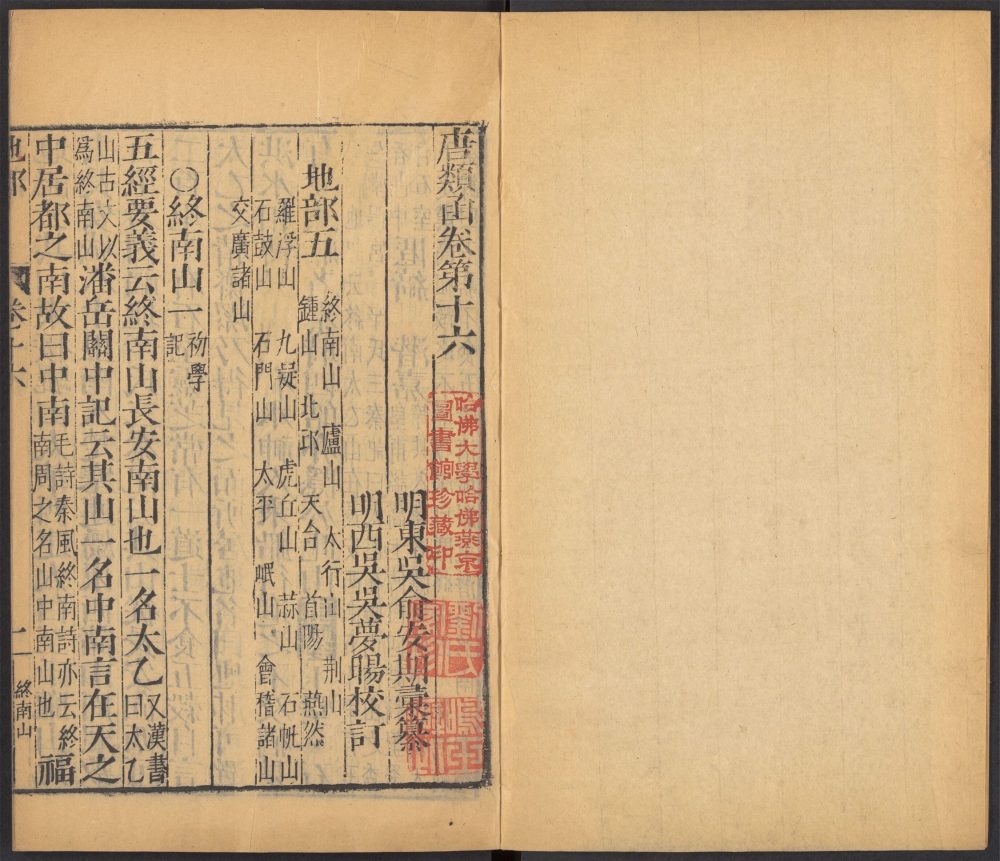 唐類函卷第十六
明東吳俞安期彚纂
明西吳吳夢暘校訂
地部五
終南山 廬山 太行山 荆山
鍾山 北邙 天台 首陽 燕然
羅浮山 九疑山 虎丘山 蒜山 石帆山
石鼓山 石門山 太平 岷山 會稽諸山
交廣諸山
○終南山一
初學
記
五經要義云終南山長安南山也一名太乙
又漢書
曰太乙
山古文以
爲終南山
潘岳關中記云其山一名中南言在天之
中居都之南故曰中南
毛詩秦風終南詩亦云終
南周之名山中南山也
福
地部
卷十六
一
終南山
哈佛大學哈佛燕京
圖書館珍藏印